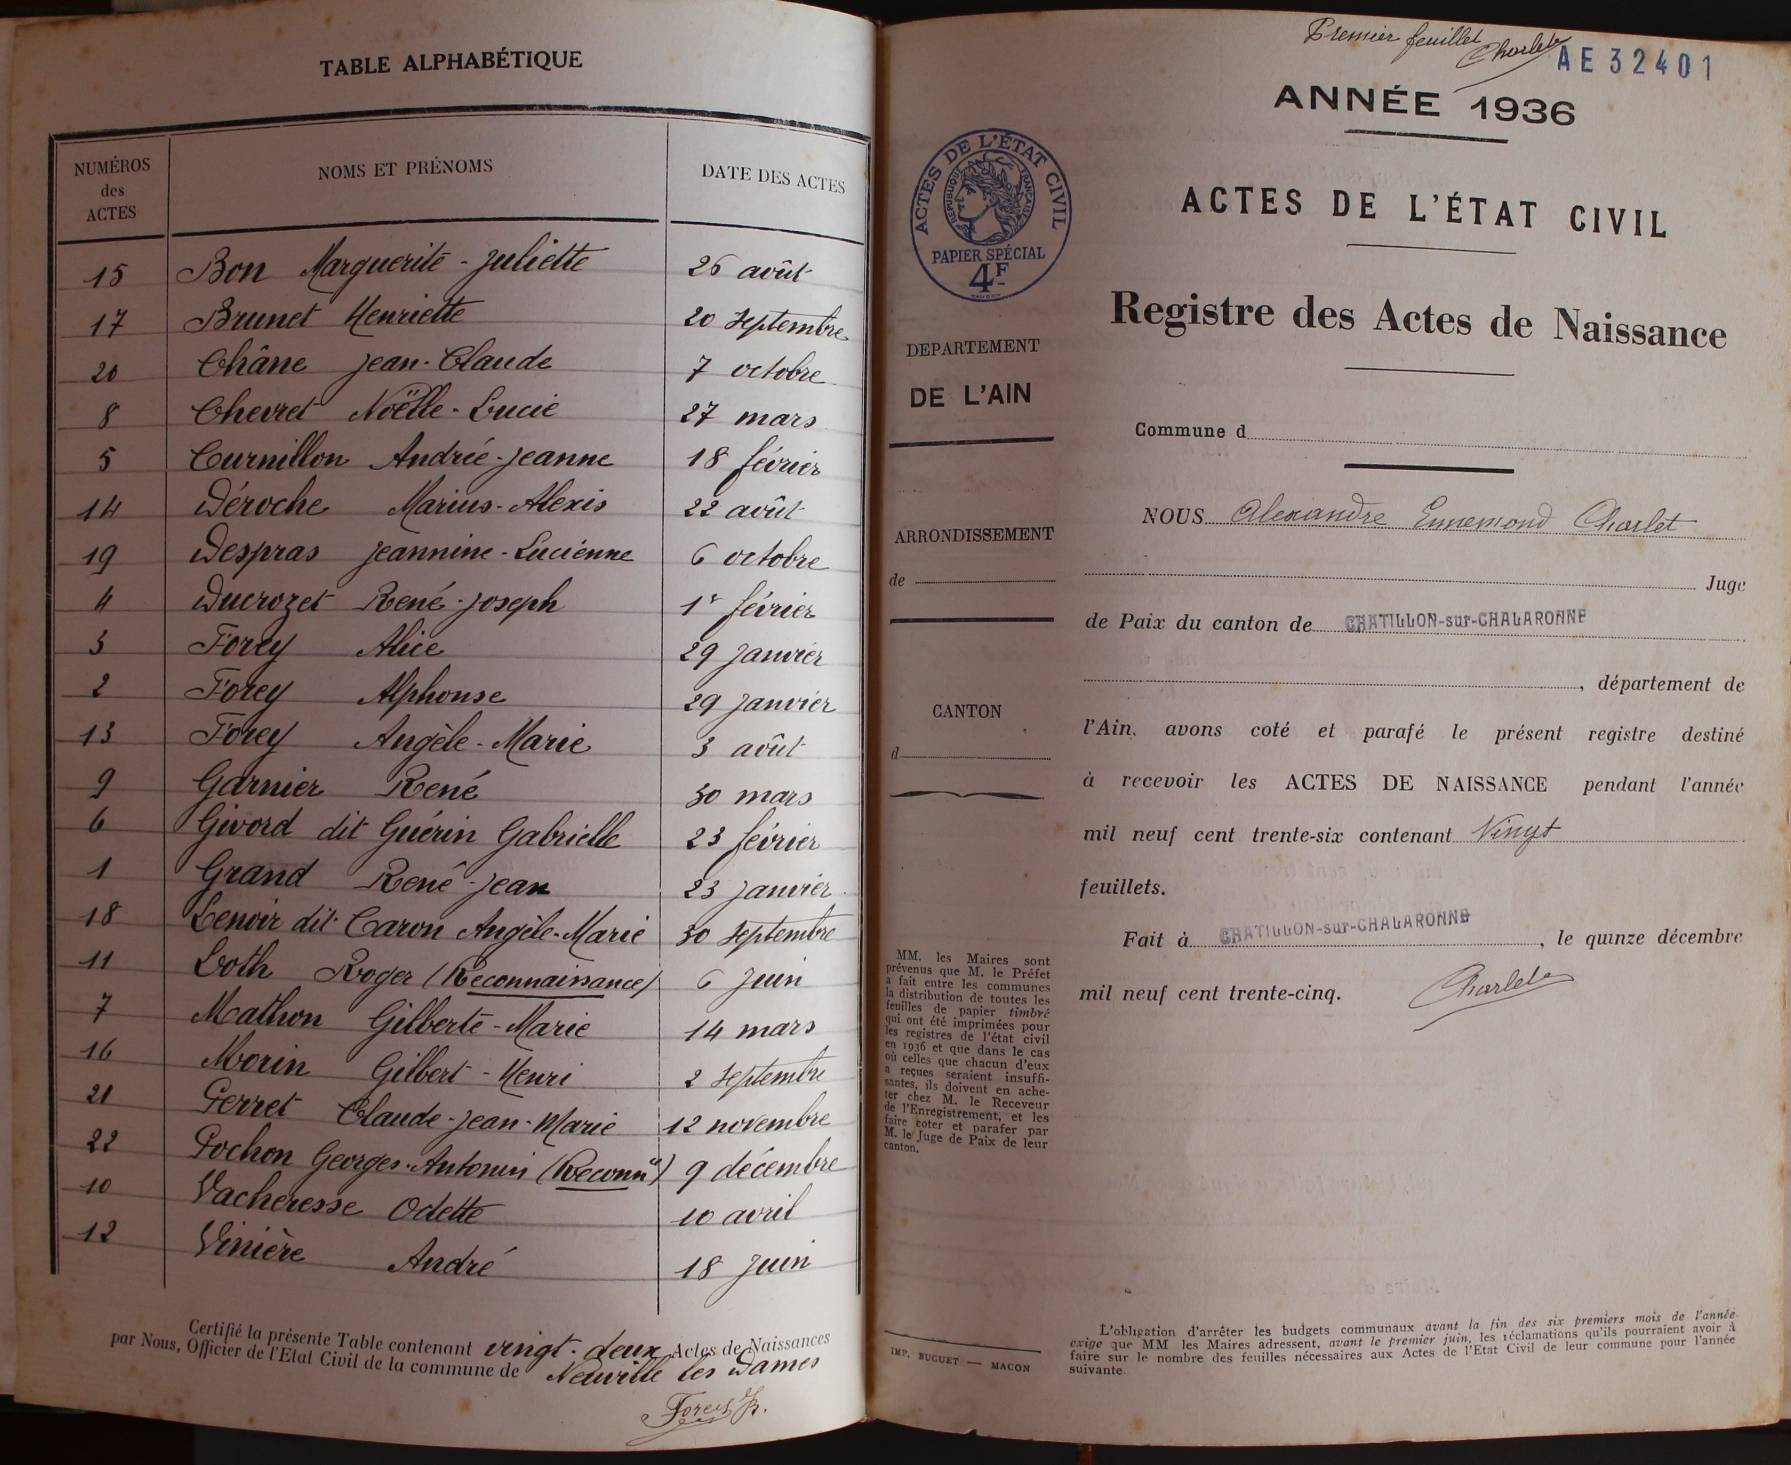 TABLE ALPHABÉTIQUE
NUMÉROS des ACTES NOMS ET PRÉNOMS DATE DES ACTES
15 Bon Marguerite-Juliette 26 août
17 Brunet Henriette 20 Septembre
20 Chêne Jean-Claude 7 octobre
8 Chevret Noëlle-Lucie 27 mars
5 Curnillon Andrée-Jeanne 18 février
14 Déroche Marius-Alexis 22 août
19 Despras Jeannine-Lucienne 6 octobre
4 Ducrozet René-Joseph 1r février
3 Forey Alice 29 Janvier
2 Forey Alphonse 29 Janvier
13 Forey Angèle-Marie 3 août
9 Garnier René 30 mars
6 Givord dit Guérin Gabrielle 23 février
1 Grand René-Jean 23 Janvier
18 Lenoir dit Caron Angèle-Marie 30 Septembre
11 Loth Roger (Reconnaissance) 6 Juin
7 Mathon Gilberte-Marie 14 mars
16 Morin Gilbert-Henri 2 Septembre
21 Perret Claude-Jean-Marie 12 novembre
22 Pochon Georges-Antonin (Reconn) 9 décembre
10 Vacheresse Odette 10 avril
12 Vinière André 18 Juin
Certifié la présente Table contenant vingt-deux Actes de Naissances
par Nous, Officier de l'Etat Civil de la commune de Neuville les Dames
Premier feuillet
Charlet
AE 32401
ANNÉE 1936
ACTES DE L'ÉTAT CIVIL
RÉPUBLIQUE FRANÇAISE
PAPIER SPÉCIAL
4F
ACTES DE L'ÉTAT CIVIL
Registre des Actes de Naissance
DEPARTEMENT
DE L'AIN
ARRONDISSEMENT
de
CANTON
d
MM. les Maires sont
prévenus que M. le Préfet
a fait entre les communes
la distribution de toutes les
feuilles de papier timbré
qui ont été imprimées pour
les registres de l'état civil
en 1936 et que dans le cas
où celles que chacun d'eux
a reçues seraient insuffi-
santes, ils doivent en ache-
ter chez M. le Receveur
de l'Enregistrement, et les
faire coter et parafer par
M. le Juge de Paix de leur
canton.
IMP. BUGUET — MACON
Commune d
NOUS Alexandre Ennemond Charlet
Juge
de Paix du canton de CHATILLON-sur-CHALARONNE
, département de
l'Ain, avons coté et parafé le présent registre destiné
à recevoir les ACTES DE NAISSANCE pendant l'année
mil neuf cent trente-six contenant Vingt
feuillets.
Fait à CHATILLON-sur-CHALARONNE, le quinze décembre
mil neuf cent trente-cinq. Charlet
L'obligation d'arrêter les budgets communaux avant la fin des six premiers mois de l'année
exige que MM les Maires adressent, avant le premier juin, les réclamations qu'ils pourraient avoir à
faire sur le nombre des feuilles nécessaires aux Actes de l'Etat Civil de leur commune pour l'année
suivante.